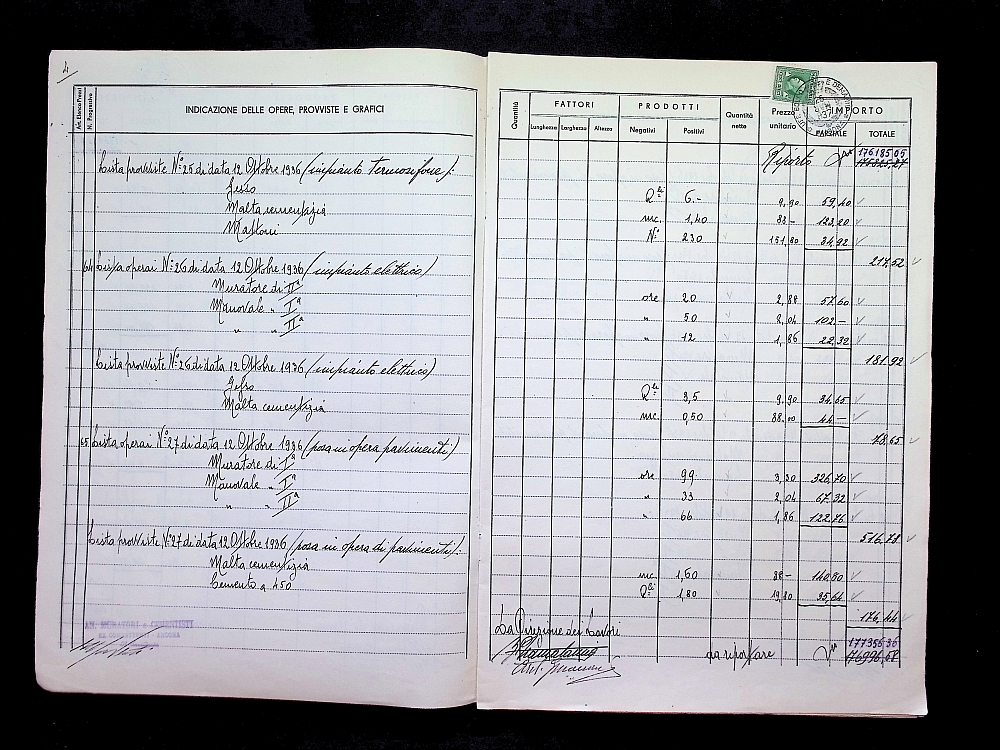 4
Art. Elenco Prezzi
N. Progressivo
INDICAZIONE DELLE OPERE, PROVVISTE E GRAFICI
Quantità
FATTORI
Lunghezza Larghezza Altezza
PRODOTTI
Negativi Positivi
Quantità nette
Prezzo unitario
IMPORTO
PARZIALE TOTALE
Riporto 176185,05
Lista provviste N° 25 di data 12 Ottobre 1936 (impianto Termosifone):
Gesso Q.li 6.- 9,90 59,40
Malta cementizia mc. 1,40 88- 123,20
Mattoni N° 230 151,80 34,92
217,52
64 Lista operai N° 26 di data 12 Ottobre 1936 (impianto elettrico)
Muratore di IIª ore 20 2,88 57.60
Manovale " Iª " 50 2,04 102.-
" " IIª " 12 1,86 22,32
181.92
Lista provviste N° 26 di data 12 Ottobre 1936 (impianto elettrico)
Gesso Q.li 3,5 9.90 34,65
Malta cementizia mc. 0,50 88.00 44-
78,65
65 Lista operai N° 27 di data 12 Ottobre 1936 (posa in opera pavimenti)
Muratore di Iª ore 99 3,30 326,70
Manovale " Iª " 33 2,04 67.32
" " IIª " 66 1,86 122,76
516,78
Lista provviste N° 27 di data 12 Ottobre 1936 (posa in opera di pavimenti):
Malta cementizia mc. 1,60 88- 140,80
Cemento a 450 Q.li 1,80 19,80 35,64
176,44
La Direzione dei Lavori
da riportare 177356,36
AN. MURATORI e CEMENTISTI